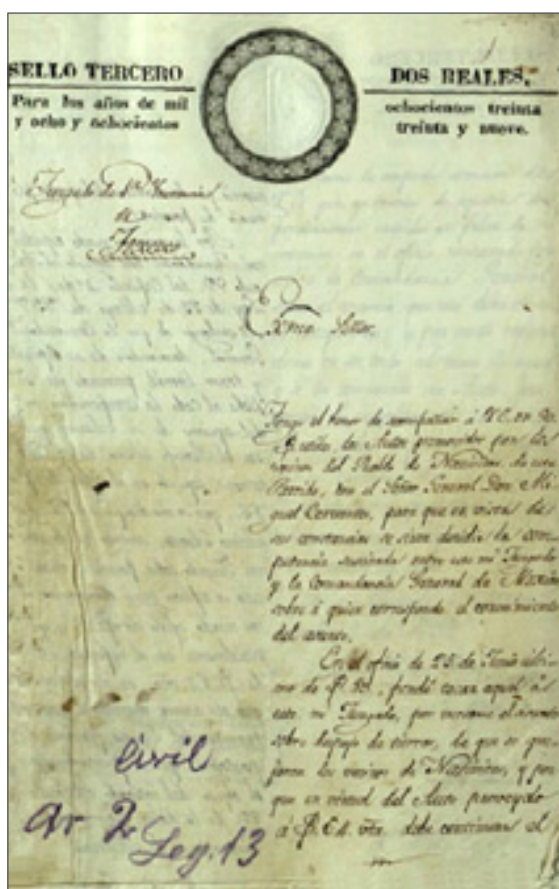 SELLO TERCERO
DOS REALES,
Para los años de mil
ochocientos treinta
y ocho y ochocientos
treinta y nueve.
Juzgado de 1ª
de
Texcoco
Exmo Señor.
Tengo el honor de acompañar á V.E. en
los Autos promovidos por los
vecinos del Pueblo de de este
Partido, con el Señor General Don Mi
guel Cervantes, para que en vista de
sus constancias se sirva decidir la com
petencia suscitada entre este mi Juzgado
y la Comandancia General de Mexico
sobre á quien corresponde el conocimiento
del
En el oficio de 25 de Junio últi
mo de f. 18. fundé tocar aquel á
este mi Juzgado, por versarse el
sobre despojo de tierras, de que se que
jaron los vecinos de y por
que en virtud del Auto proveydo
á f. debe continuar el
Civil
Ar 2
Leg. 13